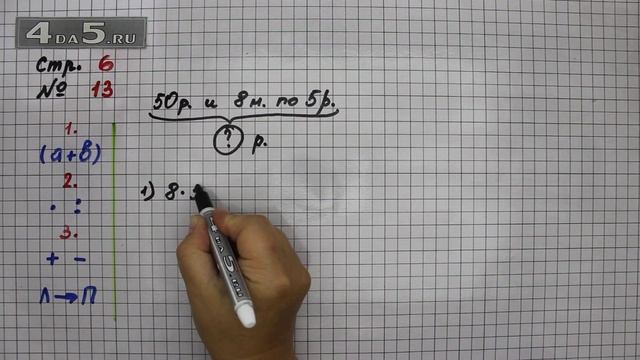 4DA5.RU
Стр. 6
№ 13
50р. и 8м. по 5р.
? р.
1.
(а+в)
2.
· :
3.
+ −
Л→П
1) 8·